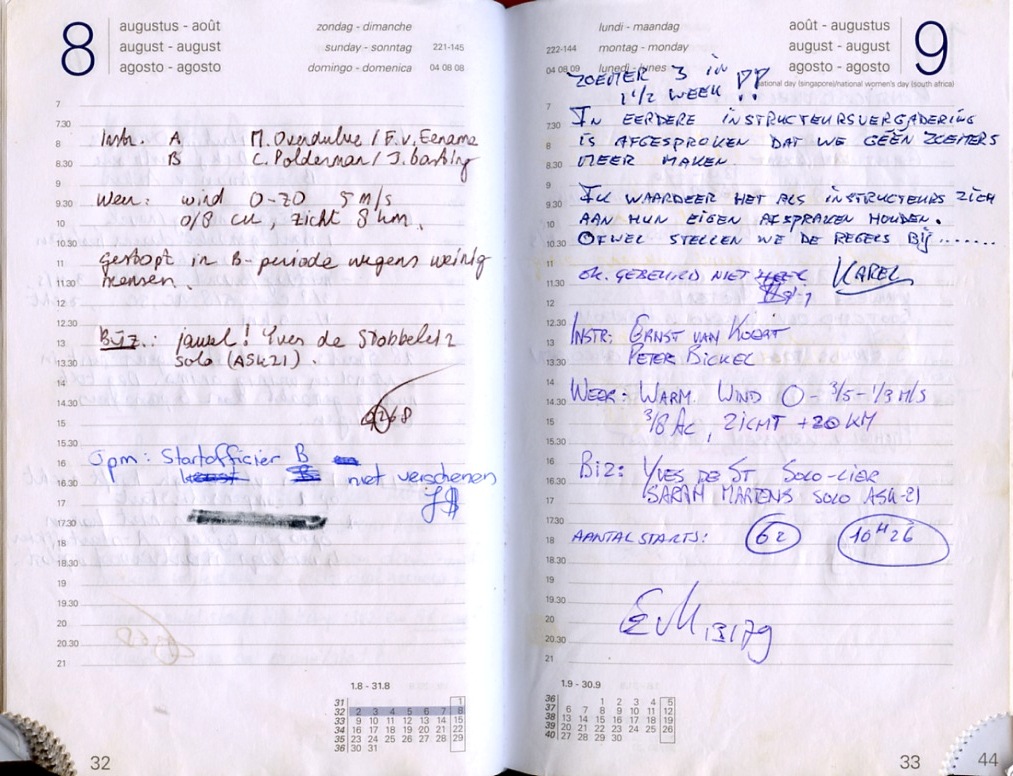 8
augustus - août
august - august
agosto - agosto
zondag - dimanche
sunday - sonntag
domingo - domenica
221-145
04 08 08
7
7.30
8
8.30
9
9.30
10
10.30
11
11.30
12
12.30
13
13.30
14
14.30
15
15.30
16
16.30
17
17.30
18
18.30
19
19.30
20
20.30
21
Instr. A M. Overdulve / F.v. Eename
B C. Polderman / J. Barling
Weer: wind 0-70 5 m/s
0/8 cu, zicht 8 km.
gestopt in B-periode wegens weinig
mensen.
Biz.: jawel! Yves de Stobbeleir
solo (ASK21).
Opm: Startofficier B
niet verschenen
1.8 - 31.8
31 1
32 2 3 4 5 6 7 8
33 9 10 11 12 13 14 15
34 16 17 18 19 20 21 22
35 23 24 25 26 27 28 29
36 30 31
32
lundi - maandag
montag - monday
lunedì - lunes
222-144
04 08 09
août - augustus
august - august
agosto - agosto
9
national day (singapore)/national women's day (south africa)
7
7.30
8
8.30
9
9.30
10
10.30
11
11.30
12
12.30
13
13.30
14
14.30
15
15.30
16
16.30
17
17.30
18
18.30
19
19.30
20
20.30
21
ZOEMER 3 in
1 1/2 WEEK !!
IN EERDERE INSTRUCTEURSVERGADERING
IS AFGESPROKEN DAT WE GÉÉN ZOEMERS
MEER MAKEN.
IK WAARDEER HET ALS INSTRUCTEURS ZICH
AAN HUN EIGEN AFSPRAKEN HOUDEN.
OFWEL STELLEN WE DE REGELS BIJ.......
OK. GEBEURD NIET MEER KAREL
INSTR: ERNST VAN
PETER BICKEL
WEER: WARM WIND 0 - 3/5 - 1/3 M/S
3/8 AC, ZICHT +20 KM
BIZ: YVES DE ST SOLO-LIER
SARAH MARTENS SOLO ASK-21
AANTAL STARTS: 62 10H26
1.9 - 30.9
36 1 2 3 4 5
37 6 7 8 9 10 11 12
38 13 14 15 16 17 18 19
39 20 21 22 23 24 25 26
40 27 28 29 30
33
44